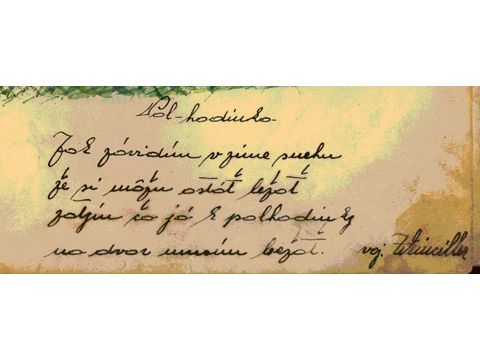 Pol-hodinka.
Jak závidím v zime suchu
že si môžu ostáť ležať
zatým čo já k polhodinky
na dvor musím bežať. voj. Weinciller